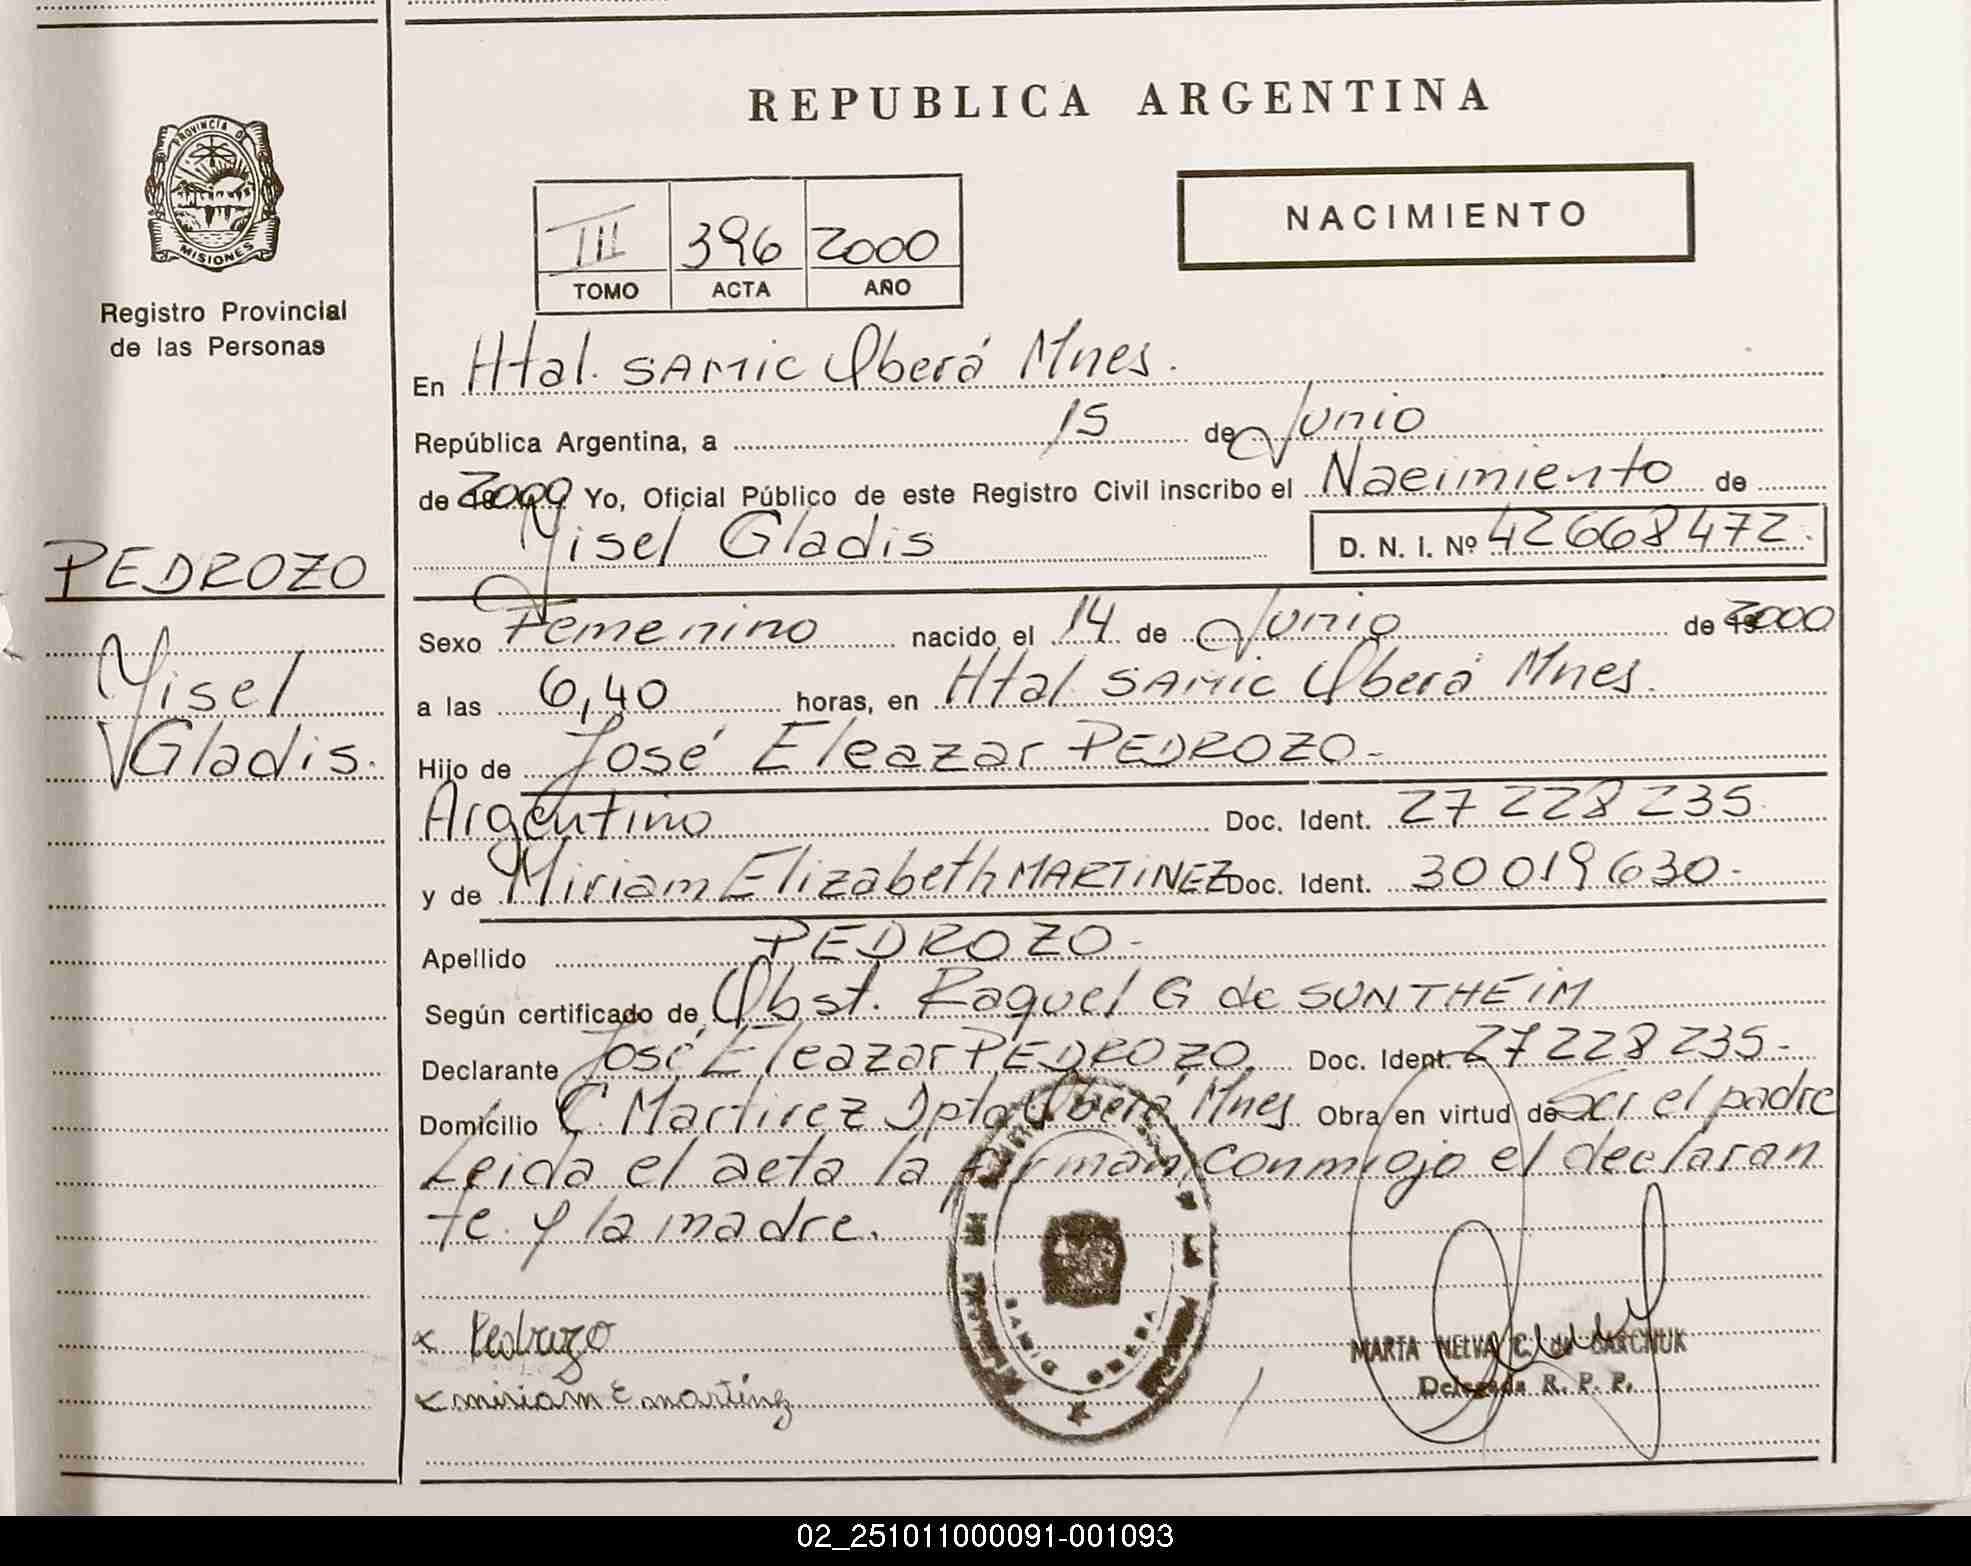 PROVINCIA DE
MISIONES
Registro Provincial
de las Personas
PEDROZO
Yisel
Gladis.
REPUBLICA ARGENTINA
III 396 2000
TOMO ACTA AÑO
NACIMIENTO
En Htal. SAMIC Oberá Mnes.
República Argentina, a 15 de Junio
de 2000 Yo, Oficial Público de este Registro Civil inscribo el Nacimiento de
Yisel Gladis D. N. I. Nº 42668472.
Sexo Femenino nacido el 14 de Junio de 2000
a las 6,40 horas, en Htal SAMIC Oberá Mnes.
Hijo de José Eleazar PEDROZO-
Argentino Doc. Ident. 27 228 235
y de Miriam Elizabeth MARTINEZ Doc. Ident. 30 019 630-
Apellido PEDROZO-
Según certificado de Obst. Raquel G de SUNTHEIM
Declarante José Eleazar PEDROZO. Doc. Ident. 27 228 235-
Domicilio C. Martirez Dpto Oberá Mnes Obra en virtud de Ser el padre
Leida el acta la firman conmigo el declaran
te y la madre.
x Pedrozo
x miriam E martinez
MARTA NELVA C. de
Delegada R. P. P.
OBERA
02_251011000091-001093